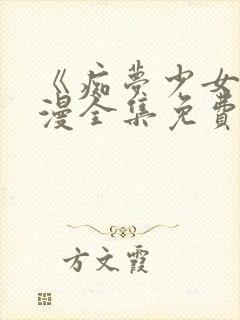 《痴夢少女
漫全集免費
方文霞